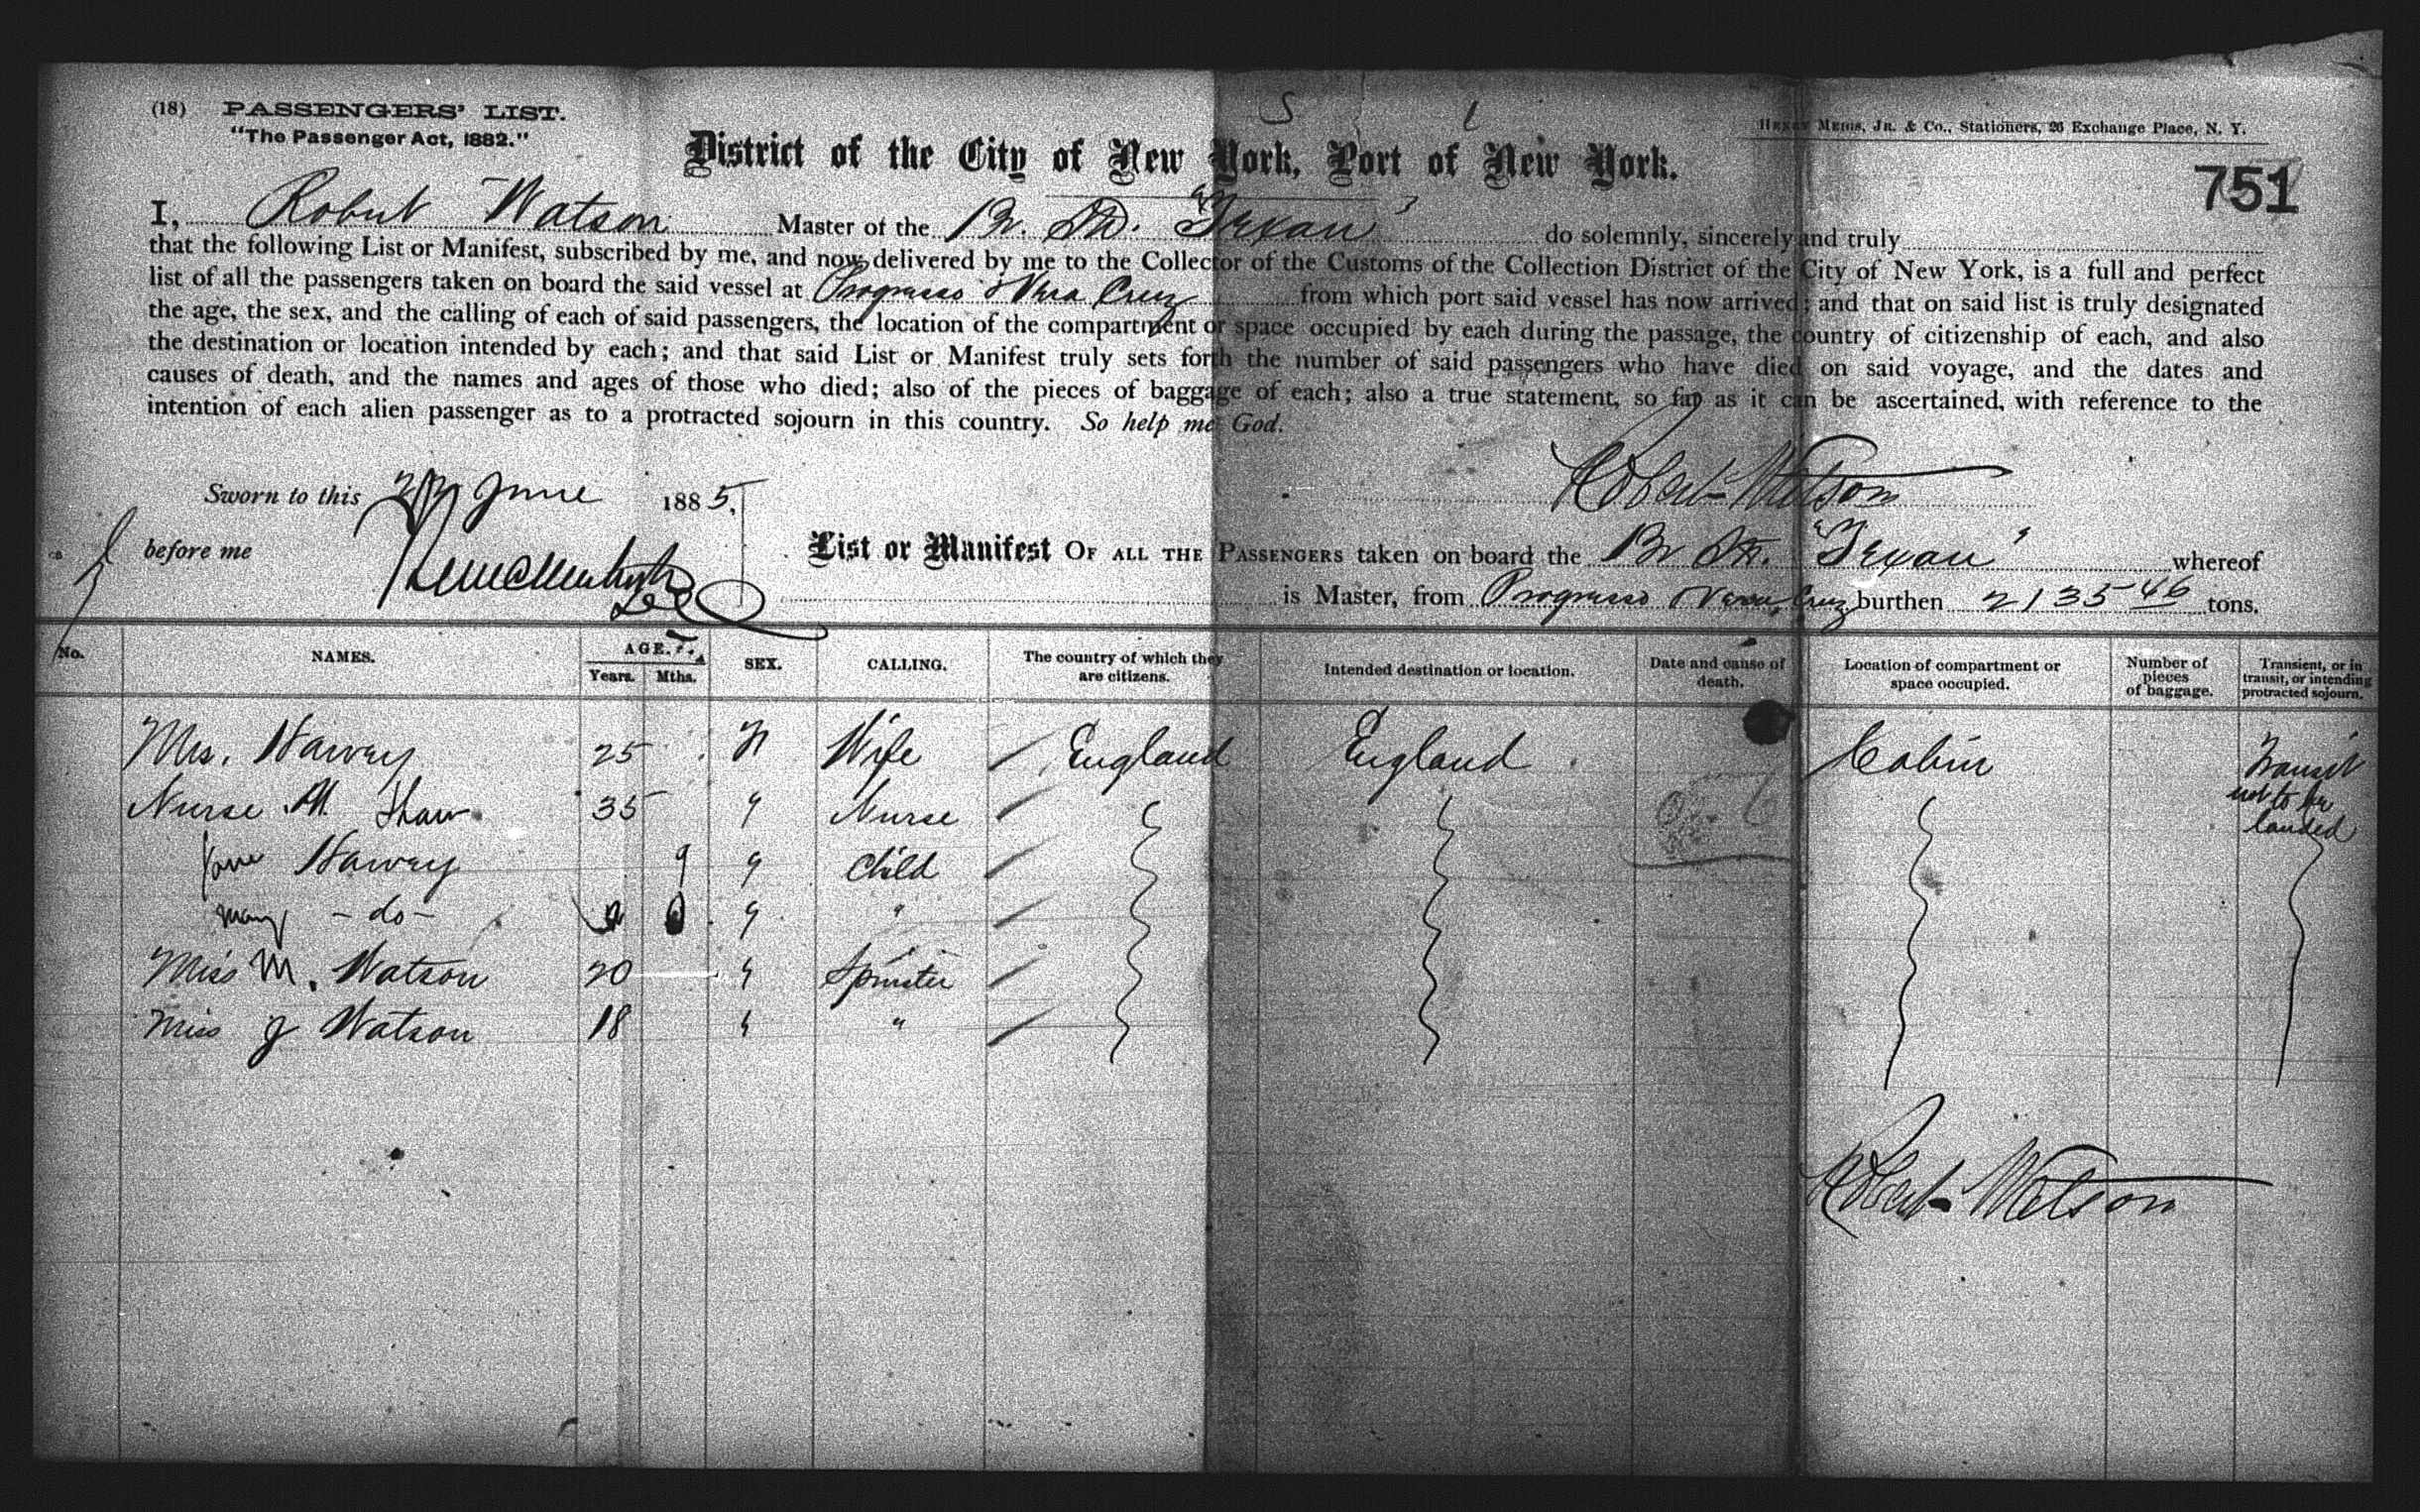 (18) PASSENGERS' LIST.
"The Passenger Act, 1882."
Henry Meigs, Jr. & Co., Stationers, 26 Exchange Place, N. Y.
District of the City of New York, Port of New York.
751
I, Robert Watson Master of the Br. Str. "Texan" do solemnly, sincerely and truly
that the following List or Manifest, subscribed by me, and now delivered by me to the Collector of the Customs of the Collection District of the City of New York, is a full and perfect
list of all the passengers taken on board the said vessel at Progresso & Vera Cruz from which port said vessel has now arrived; and that on said list is truly designated
the age, the sex, and the calling of each of said passengers, the location of the compartment or space occupied by each during the passage, the country of citizenship of each, and also
the destination or location intended by each; and that said List or Manifest truly sets forth the number of said passengers who have died on said voyage, and the dates and
causes of death, and the names and ages of those who died; also of the pieces of baggage of each; also a true statement, so far as it can be ascertained, with reference to the
intention of each alien passenger as to a protracted sojourn in this country. So help me God.
Robert Watson
Sworn to this June 1885,
before me
List or Manifest OF ALL THE PASSENGERS taken on board the Br Str. "Texan" whereof
is Master, from Progresso Vera Cruz burthen 2135 46 tons.
No. NAMES. AGE. Years. Mths. SEX. CALLING. The country of which they are citizens. Intended destination or location. Date and cause of death. Location of compartment or space occupied. Number of pieces of baggage. Transient, or in transit, or intending protracted sojourn.
Mrs. Harvey 25 Wife England England Cabin Transit
not to be
landed
Nurse M. Shaw 35 " Nurse
Jane Harvey 9 " Child
Mary - do - " "
Miss M. Watson 20 " Spinster
Miss J Watson 18 " "
Robert Watson